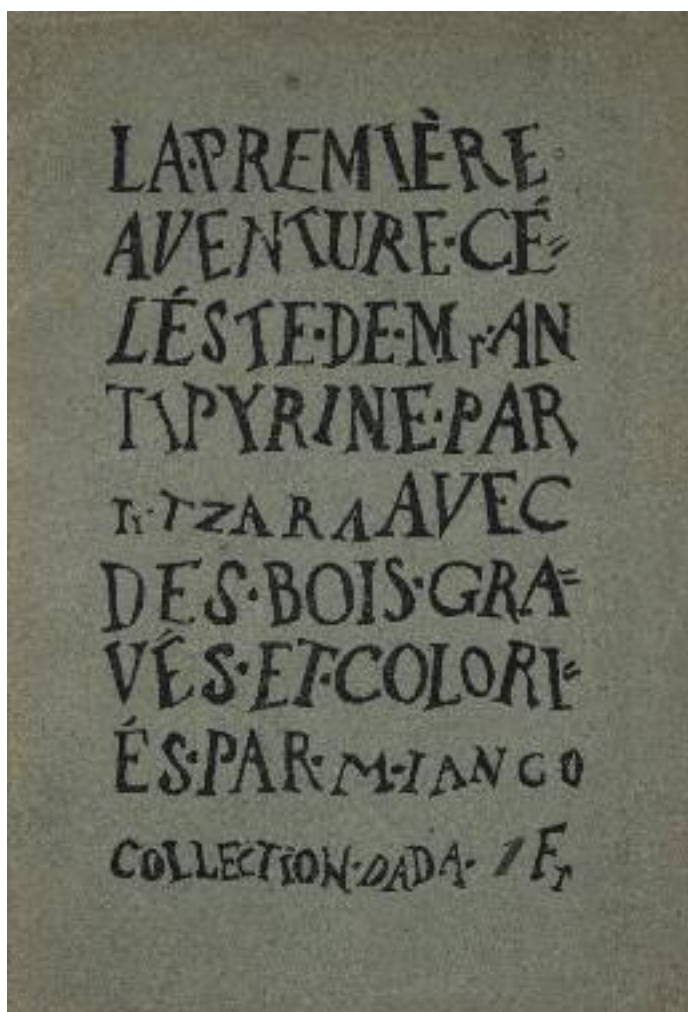 LA·PREMIÈRE
AVENTURE·CÉ=
LÉSTE·DE·Mr·AN
TIPYRINE·PAR
Tr·TZARA AVEC
DES·BOIS·GRA=
VÉS·ET·COLORI=
ÉS·PAR·M·IANCO
COLLECTION·DADA· 1 Fr